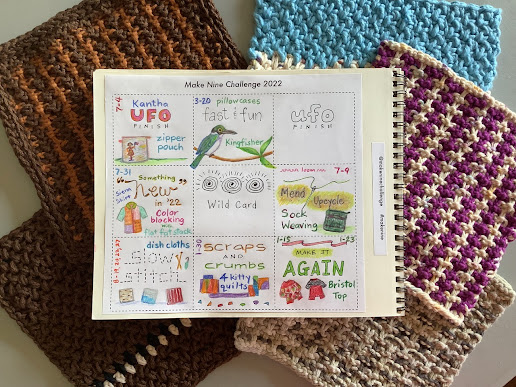 Make Nine Challenge 2022
7-4
Kantha
UFO
FINISH
zipper
pouch
3-20 pillowcases
fast & fun
Kingfisher
ufo
FINISH
7-31
Something
New
in '22
Color
blocking
with
flat fat stack
Wild Card
7-9
Mend
Upcycle
Sock
Weaving
dish cloths
slow
stitch
1-30
SCRAPS
AND
crumbs
4 kitty
quilts
1-15
1-23
MAKE IT
AGAIN
Bristol
Top